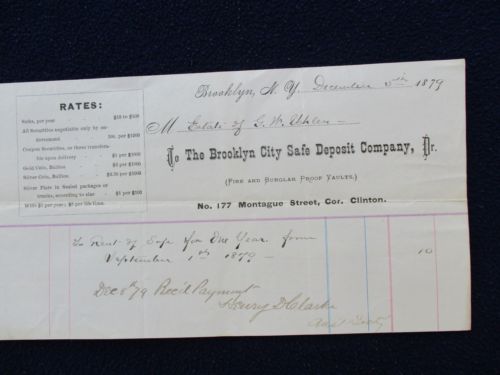 RATES:
Safes, per year $10 to $100
All Securities negotiable only by en-
dorsement 50c. per $1000
Coupon Securities, or those transfera-
ble upon delivery $1 per $1000
Gold Coin, Bullion $1 per $1000
Silver Coin, Bullion per $1000
Silver Plate in Sealed packages or
trunks, according to size $1 per $100
per year;
Brooklyn, N. Y. December 5th 1879
M Estate of G. W.
To The Brooklyn City Safe Deposit Company, Dr.
(FIRE AND BURGLAR PROOF VAULTS,)
No. 177 Montague Street, Cor. Clinton.
To Rent of Safe for One Year from
September 1st 1879 — 10
Dec 8th 79 Rec'd Payment
Henry D Clarke